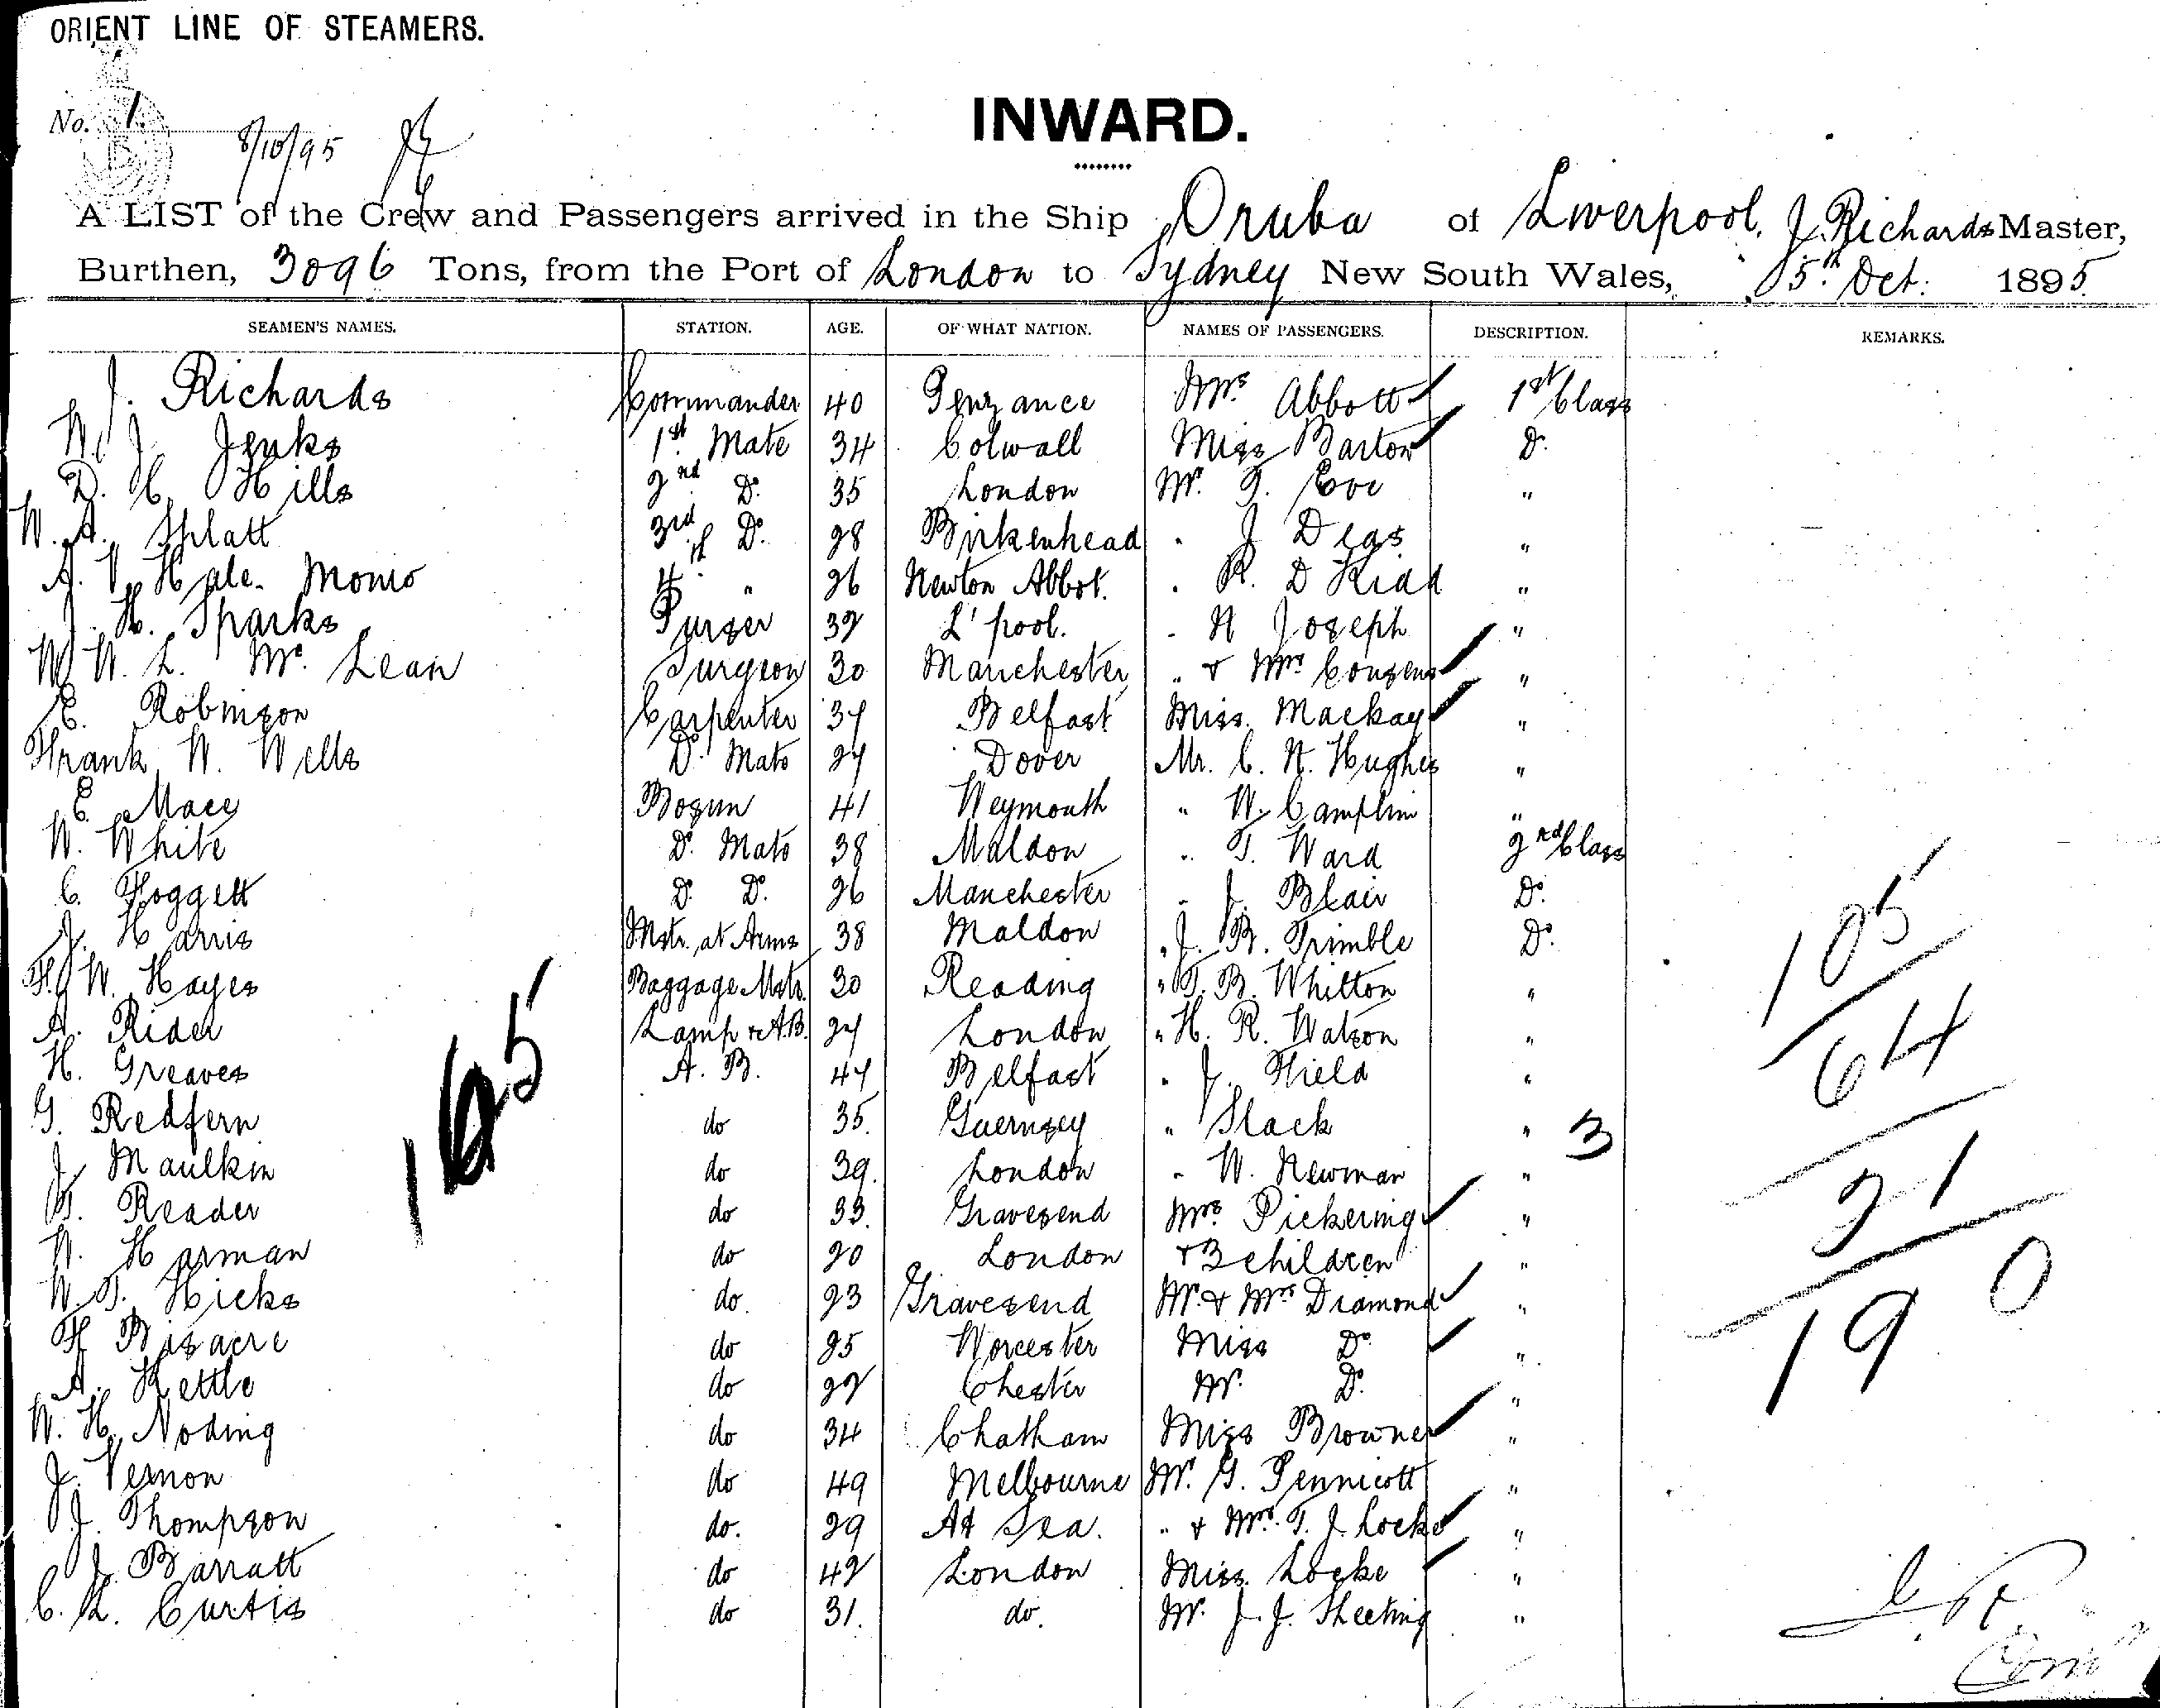 ORIENT LINE OF STEAMERS.
No. 1.
8/10/95
INWARD.
A LIST of the Crew and Passengers arrived in the Ship Oruba of Liverpool, J. Richards Master,
Burthen, 3096 Tons, from the Port of London to Sydney New South Wales, 5th Oct: 1895.
SEAMEN'S NAMES. STATION. AGE. OF WHAT NATION. NAMES OF PASSENGERS. DESCRIPTION. REMARKS.
J. Richards Commander 40 Penzance Mrs Abbott 1st Class
W. J. Jenks 1st Mate 34 Colwall Miss Barton Do.
D. C. Hills 2nd Do. 35 London Mr. T. Eve "
W. A. Splatt 3rd Do. 28 Birkenhead . J Deas "
A. V. Hale-Monro 4th " 26 Newton Abbot. . R. D Kidd "
J. H. Sparks Purser 32 L'pool. . N Joseph "
W. W. L. Mc. Lean Surgeon 30 Manchester " & Mrs Couzens "
E. Robinson Carpenter 34 Belfast Miss. Mackay "
Frank W. Wells Do. Mate 24 Dover Mr. C. N. Hughes "
C. Mace Bosun 41 Weymouth " W. Camplin "
W. White Do. Mate 38 Maldon " T. Ward 2nd Class
C. Foggett Do. Do. 26 Manchester " J. Blair Do.
J. Harris Mstr. at Arms 38 Maldon " J. R. Trimble Do.
F. W. Hayes Baggage Mstr. 30 Reading " T. B. Whitton "
A. Rider Lamp & A.B. 24 London " H. R. Watson "
H. Greaves A. B. 44 Belfast " J. Field "
G. Redfern do 35. Guernsey " Slack " 3
J. Maulkin do 39. London " W. Newman "
T. Reader do 33. Gravesend Mrs. Pickering "
W. Harman do 20 London & 3 children "
W. T. Hicks do. 23 Gravesend Mr. & Mrs Diamond "
F. Bisacre do 25 Worcester Miss Do. "
A. Kettle do 22 Chester Mr. Do. "
W. H. Noding do 34 Chatham Miss Browne "
J. Vernon do 49 Melbourne Mr. G. Pennicott "
J. Thompson do. 29 At Sea. " & Mrs. T. J. Locke "
J. Barratt do 42 London Miss. Locke "
C. L. Curtis do 31. do. Mr. J. J. Sheeting "
165
105
64
21
190